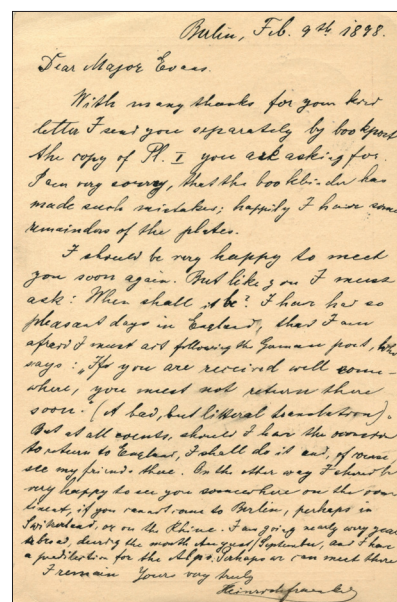 Berlin, Feb. 9th 1898.
Dear Major Evans.
With many thanks for your kind
letter I send you separately by bookpost
the copy of Pl. I you ask asking for.
I am very sorry, that the bookbinder has
made such mistakes; happily I have some
remainders of the plates.
I should be very happy to meet
you soon again. But like you I must
ask: When shall it be? I have had so
pleasant days in England, that I am
afraid I must act following the German poet, who
says: "If you are received well some-
where, you must not return there
soon." (A bad, but litteral translation).
But at all events, should I have the
to return to England, I shall do it and, of course
see my friends there. On the other way I should be
very happy to see you somewhere on the con-
tinent, if you cannot come to Berlin, perhaps in
Switzerland, or on the Rhine. I am going nearly every year
abroad, during the month August/September, and I have
a predilection for the Alps. Perhaps we can meet there
I remain Yours very truly